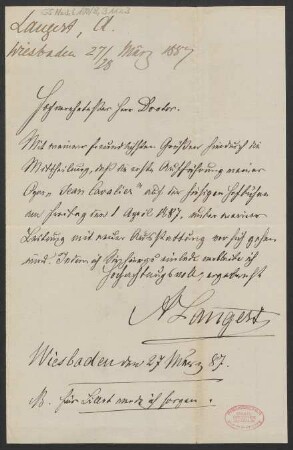 Langert, A.
Wiesbaden 27/28 März 1887
Hochverehrtester Herr Doctor.
Mit meinen freundlichsten Grüßen hiedurch die
Mittheilung, daß die erste Aufführung meiner
Oper „Jean Cavalier" auf der hiesigen Hofbühne
am Freitag den 1 April 1887. unter meiner
Leitung mit neuer Ausstattung vor sich gehen
wird. Indem ich Sie hierzu einlade verbleibe ich
Hochachtungsvoll ergebenst
A Langert
Wiesbaden den 27 März 87.
N. Für Karte werde ich sorgen.